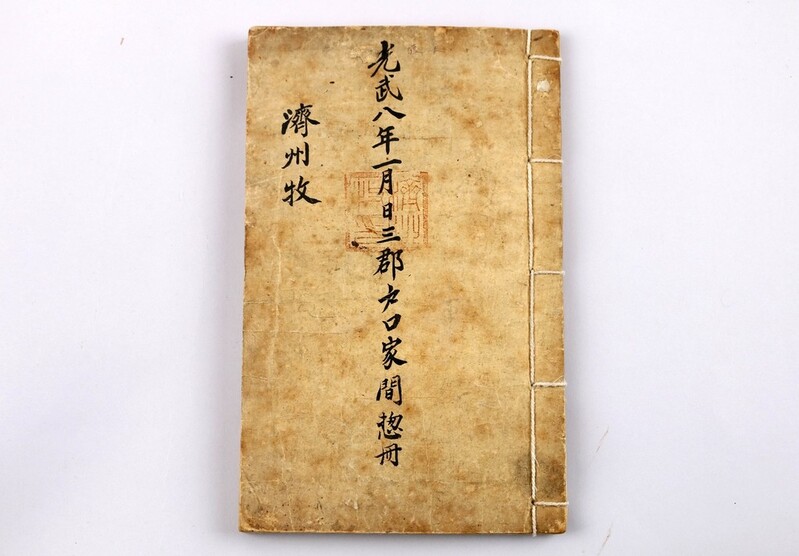 光武八年二月日三郡戶口家間摠冊
濟州牧